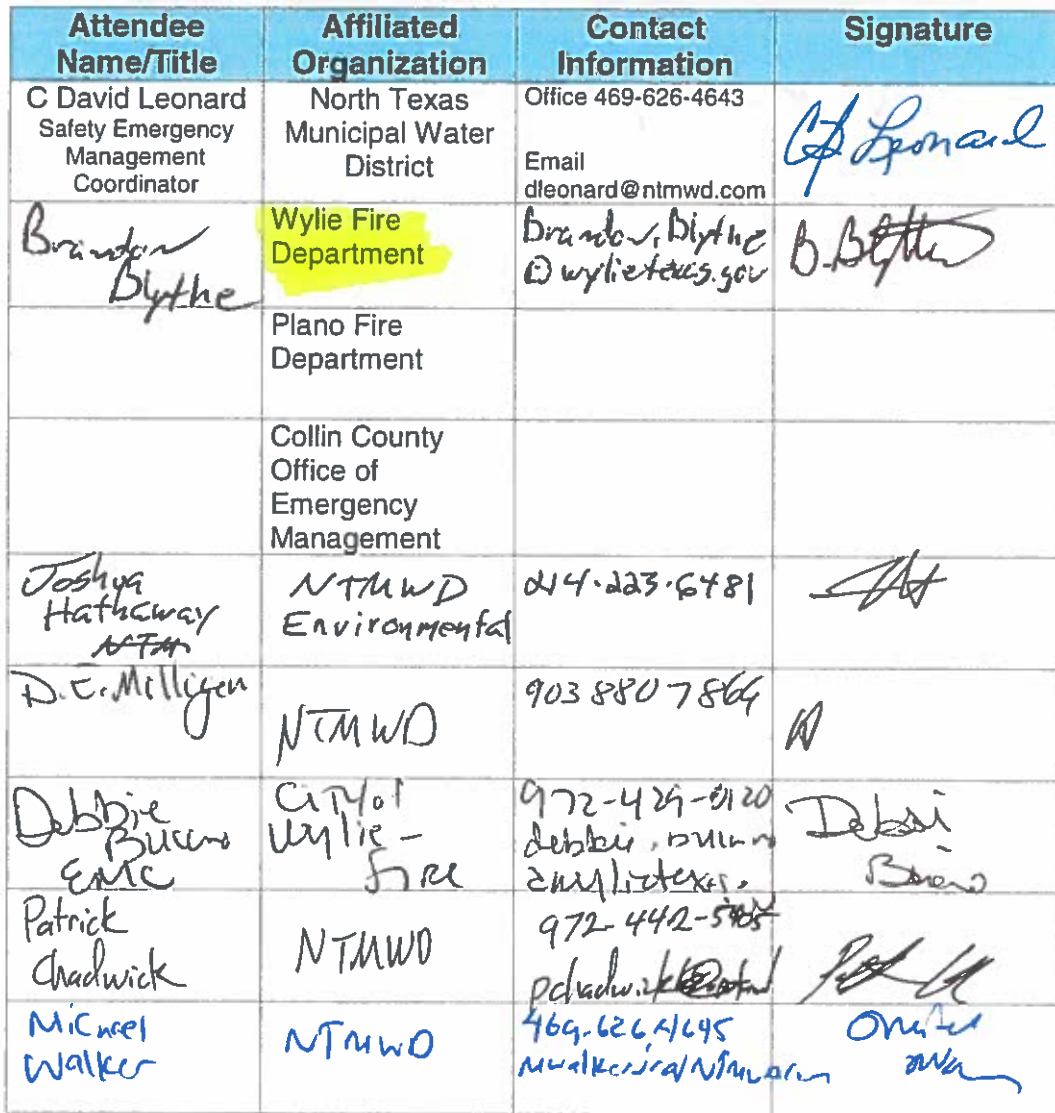 Attendee Name/Title
Affiliated Organization
Contact Information
Signature
C David Leonard
Safety Emergency
Management
Coordinator
North Texas
Municipal Water
District
Office 469-626-4643
Email
dleonard@ntmwd.com
CD Leonard
Brandon
Blythe
Wylie Fire
Department
Brandon.Blythe
@wylietexas.gov
B. Blythe
Plano Fire
Department
Collin County
Office of
Emergency
Management
Joshua
Hathaway
NTM
NTMWD
Environmental
214.223.6481
D.E. Milligen
NTMWD
903 880 7864
Debbie
Buccino
EMC
City of
Wylie -
Fire
972-429-0120
debbie.
Patrick
Chadwick
NTMWD
972-442-
pchadwick@
Michael
Walker
NTMWD
469.626.4645